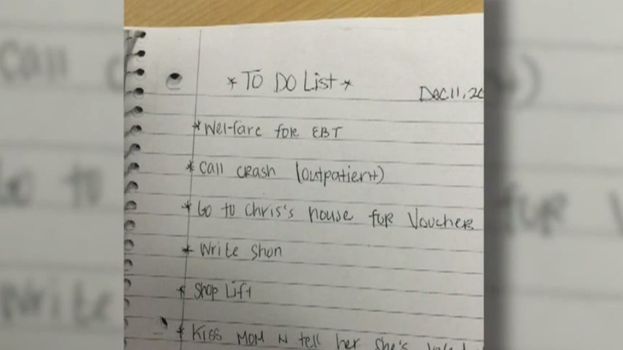 *TO DO List*
Dec 11, 20
*Welfare for EBT
*Call crash (outpatient)
*Go to Chris's house for Voucher
*Write Shon
*Shop Lift
*Kiss MOM N tell her she's